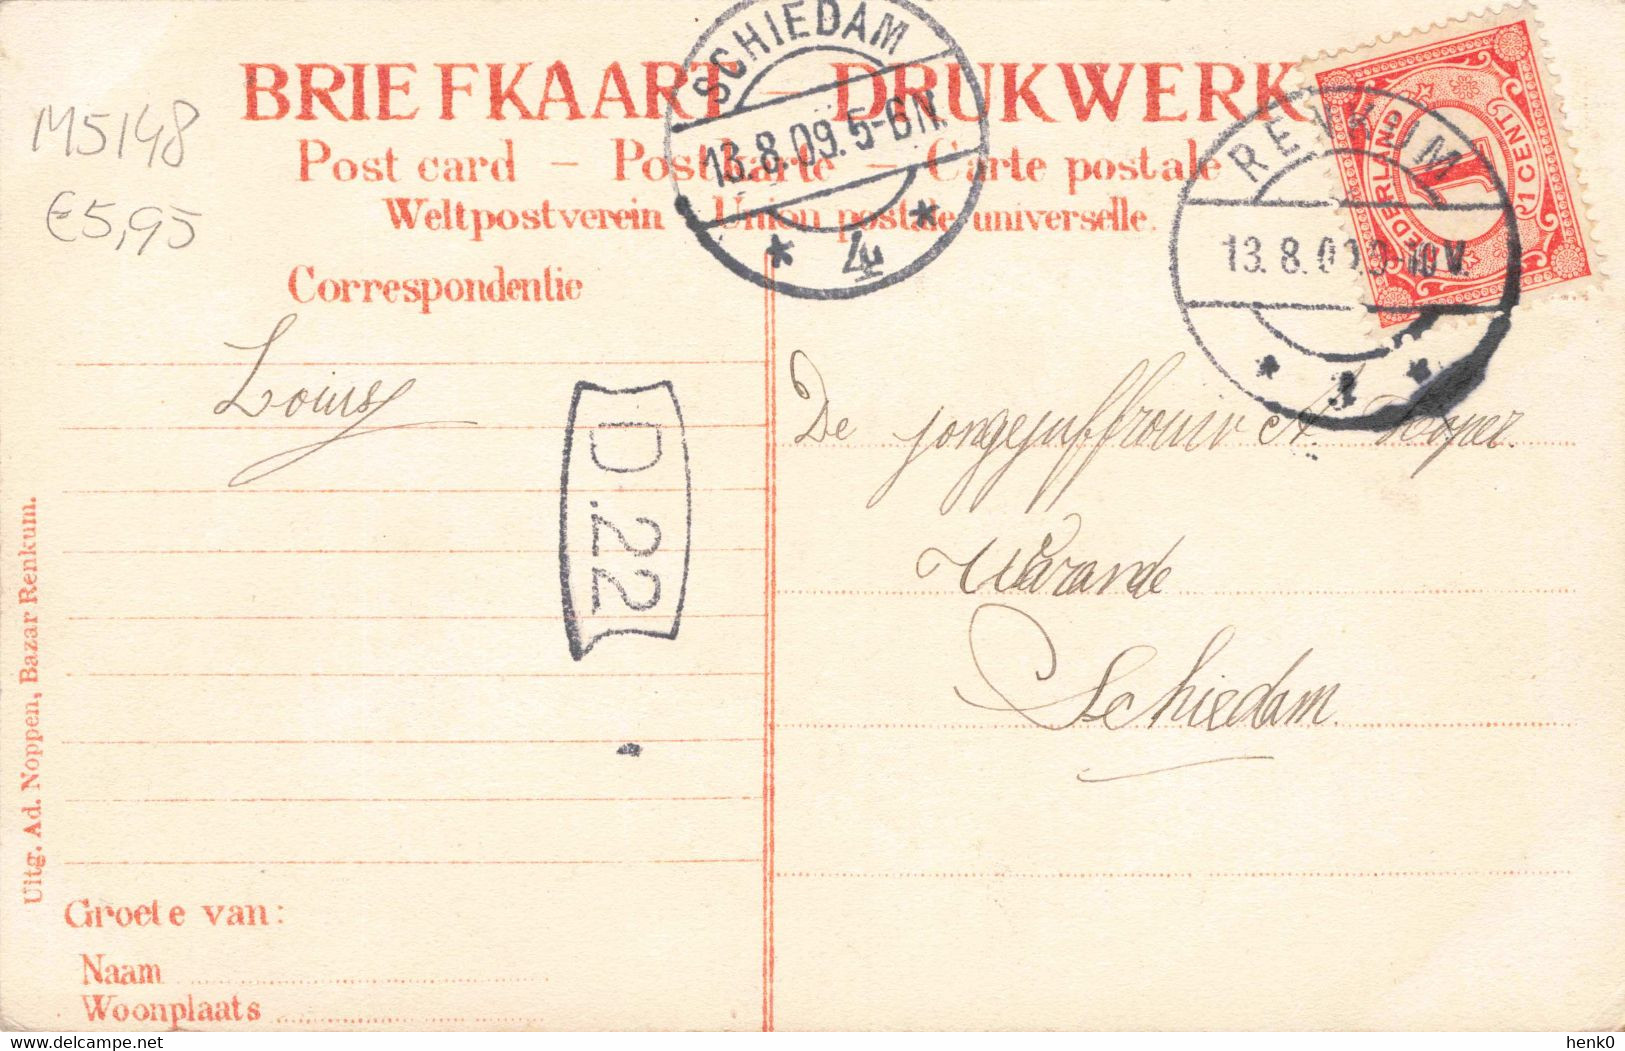 SCHIEDAM
13.8.09.5-6N.
4
BRIEFKAART – DRUKWERK
Post card – Postkarte – Carte postale
Weltpostverein – Union postale universelle.
M5148
€5,95
RENKUM
13.8.09.9-10V.
1
NEDERLAND
1
1 CENT
Correspondentie
Louis
D.22
De jongejuffrouw A.
Warande
Schiedam.
Uitg. Ad. Noppen, Bazar Renkum.
Groete van:
Naam
Woonplaats
delcampe.net
henk0